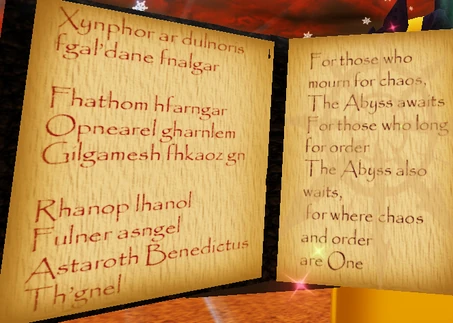 Xynphor ar dulnoris
fgal'dane fnalgar
Fhathom hfarngar
Opnearel gharnlem
Gilgamesh fhkaoz gn
Rhanop lhanol
Fulner asngel
Astaroth Benedictus
Th'gnel
For those who
mourn for chaos,
The Abyss awaits
For those who long
for order
The Abyss also
waits,
for where chaos
and order
are One